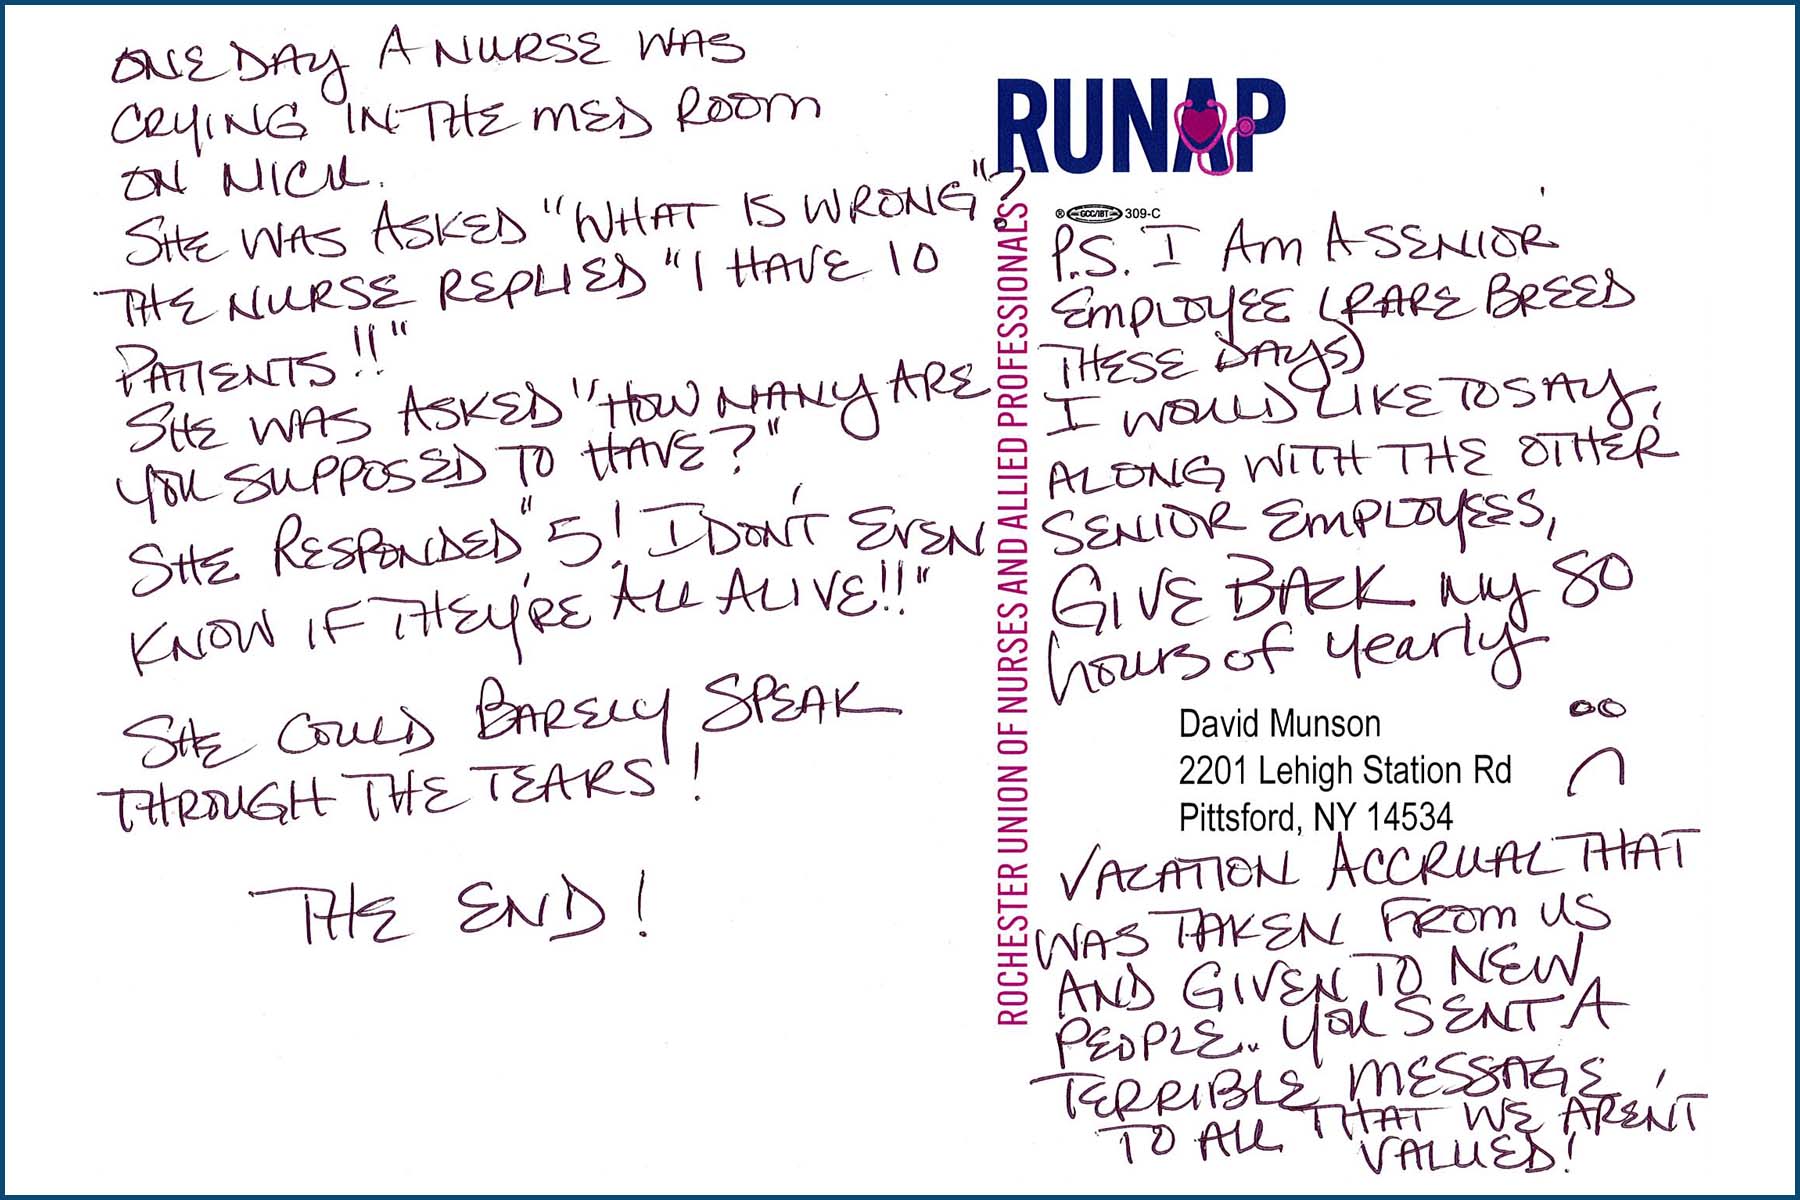 ONE DAY A NURSE WAS
CRYING IN THE MED ROOM
ON NICU.
SHE WAS ASKED "WHAT IS WRONG"?
THE NURSE REPLIED "I HAVE 10
PATIENTS!!"
SHE WAS ASKED "HOW MANY ARE
YOU SUPPOSED TO HAVE?"
SHE RESPONDED "5! I DON'T EVEN
KNOW IF THEY'RE ALL ALIVE!!"
SHE COULD BARELY SPEAK
THROUGH THE TEARS!
THE END!
RUNAP
ROCHESTER UNION OF NURSES AND ALLIED PROFESSIONALS
® GCC/IBT 309-C
P.S. I AM A SENIOR
EMPLOYEE (RARE BREED
THESE DAYS)
I WOULD LIKE TO SAY,
ALONG WITH THE OTHER
SENIOR EMPLOYEES,
GIVE BACK my 80
hours of yearly
David Munson
2201 Lehigh Station Rd
Pittsford, NY 14534
VACATION ACCRUAL THAT
WAS TAKEN FROM US
AND GIVEN TO NEW
PEOPLE.. YOU SENT A
TERRIBLE MESSAGE
TO ALL THAT WE AREN'T
VALUED!